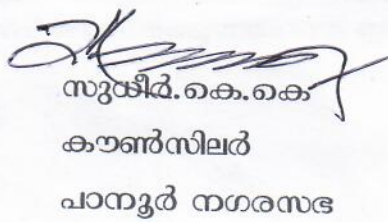 സുധീർ.കെ.കെ
കൗൺസിലർ
പാനൂർ നഗരസഭ